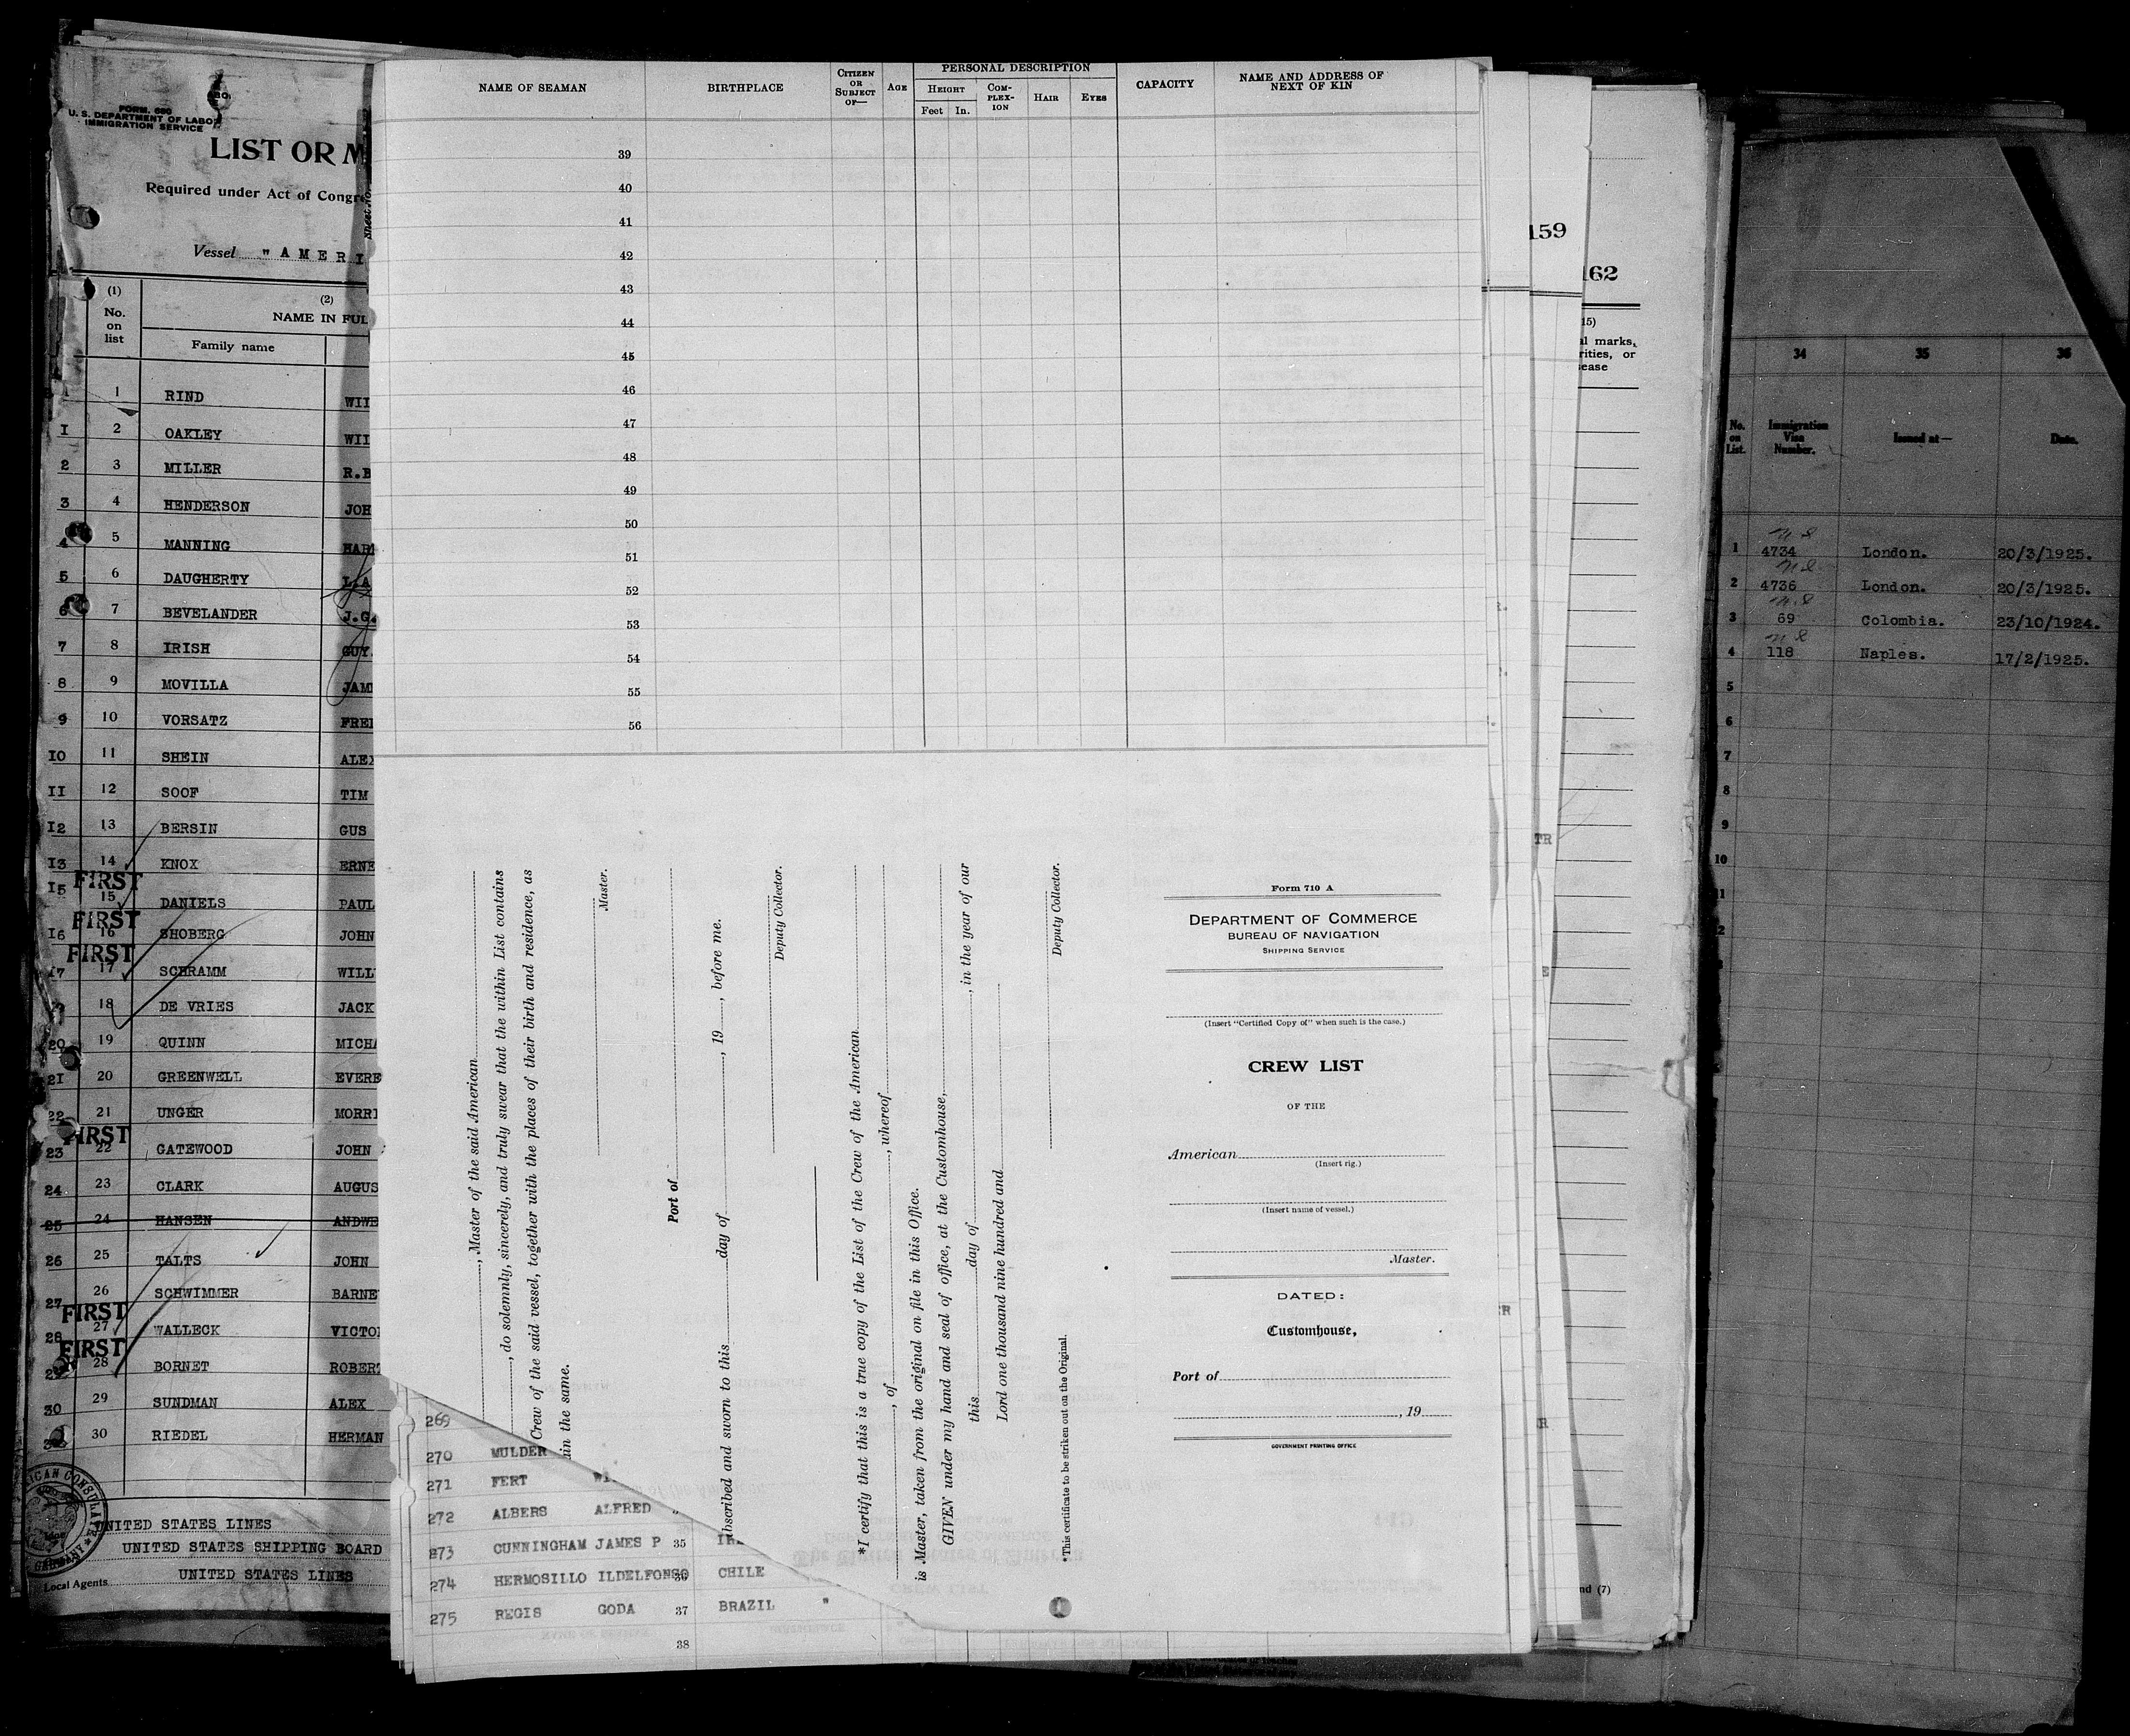 FORM. 680
U. S. DEPARTMENT OF LABOR
IMMIGRATION SERVICE
LIST OR
Required under Act of Congre
Sheet No.
Vessel "AMERI
(1)
No.
on
list
(2)
NAME IN FUL
Family name
1 RIND WII
I 2 OAKLEY WII
2 3 MILLER R.B
3 4 HENDERSON JOH
4 5 MANNING HAR
5 6 DAUGHERTY L.A
6 7 BEVELANDER J.G.
7 8 IRISH GUY
8 9 MOVILLA JAM
9 10 VORSATZ FRE
IO 11 SHEIN ALEX
II 12 SOOF TIM
I2 13 BERSIN GUS
I3 14 KNOX ERNE
FIRST
I5 15 DANIELS PAUL
FIRST
I6 16 SHOBERG JOHN
FIRST
I7 17 SCHRAMM WILL
18 DE VRIES JACK
20 19 QUINN MICHA
21 20 GREENWELL EVERE
22 21 UNGER MORRI
FIRST
23 22 GATEWOOD JOHN
24 23 CLARK AUGUS
25 24 HANSEN ANDWE
26 25 TALTS JOHN
27 26 SCHWIMMER BARNE
FIRST
28 27 WALLECK VICTO
FIRST
29 28 BORNET ROBERT
30 29 SUNDMAN ALEX
30 RIEDEL HERMAN
ICAN CONSULATE
GERMANY
UNITED STATES LINES
UNITED STATES SHIPPING BOARD
Local Agents UNITED STATES LINES
NAME OF SEAMAN
BIRTHPLACE
CITIZEN
OR
SUBJECT
OF—
AGE
PERSONAL DESCRIPTION
HEIGHT
Feet In.
COM-
PLEX-
ION
HAIR
EYES
CAPACITY
NAME AND ADDRESS OF
NEXT OF KIN
39
40
41
42
43
44
45
46
47
48
49
50
51
52
53
54
55
56
, Master of the said American
, do solemnly, sincerely, and truly swear that the within List contains
Crew of the said vessel, together with the places of their birth and residence, as
in the same.
Master.
Port of
bscribed and sworn to this day of , 19 , before me.
Deputy Collector.
*I certify that this is a true copy of the List of the Crew of the American
, of , whereof
is Master, taken from the original on file in this Office.
GIVEN under my hand and seal of office, at the Customhouse,
this day of , in the year of our
Lord one thousand nine hundred and
Deputy Collector.
*This certificate to be striken out on the Original.
Form 710 A
DEPARTMENT OF COMMERCE
BUREAU OF NAVIGATION
SHIPPING SERVICE
(Insert "Certified Copy of" when such is the case.)
CREW LIST
OF THE
American
(Insert rig.)
(Insert name of vessel.)
Master.
DATED:
Customhouse,
Port of
, 19
GOVERNMENT PRINTING OFFICE
269
270 MULDER
271 FERT
272 ALBERS ALFRED
273 CUNNINGHAM JAMES P 35
274 HERMOSILLO ILDELFONSO 36 CHILE
275 REGIS GODA 37 BRAZIL "
38
159
162
15)
al marks,
rities, or
ease
TR
E
R
R
nd (7)
34
35
36
No.
on
List.
Immigration
Visa
Number.
Issued at—
Date.
1 4734 London. 20/3/1925.
2 4736 London. 20/3/1925.
3 69 Colombia. 23/10/1924.
4 118 Naples. 17/2/1925.
5
6
7
8
9
10